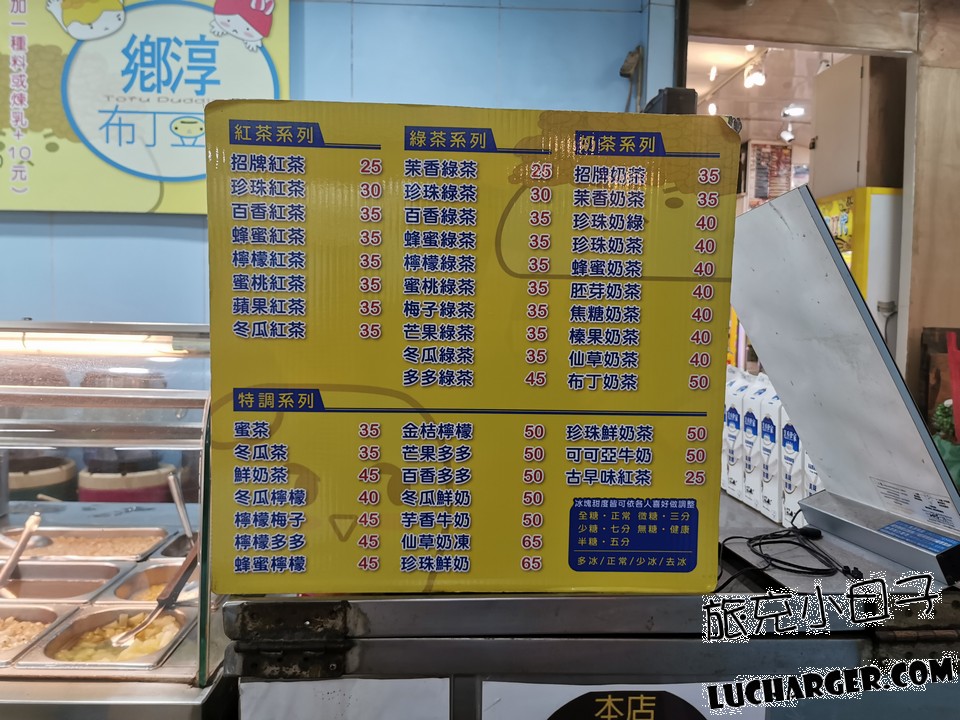 加一種料或煉乳+10元
鄉淳
Tofu Pudding
布丁豆
紅茶系列
招牌紅茶 25
珍珠紅茶 30
百香紅茶 35
蜂蜜紅茶 35
檸檬紅茶 35
蜜桃紅茶 35
蘋果紅茶 35
冬瓜紅茶 35
綠茶系列
茉香綠茶 25
珍珠綠茶 30
百香綠茶 35
蜂蜜綠茶 35
檸檬綠茶 35
蜜桃綠茶 35
梅子綠茶 35
芒果綠茶 35
冬瓜綠茶 35
多多綠茶 45
奶茶系列
招牌奶茶 35
茉香奶茶 35
珍珠奶綠 40
珍珠奶茶 40
蜂蜜奶茶 40
胚芽奶茶 40
焦糖奶茶 40
榛果奶茶 40
仙草奶茶 40
布丁奶茶 50
特調系列
蜜茶 35
冬瓜茶 35
鮮奶茶 45
冬瓜檸檬 40
檸檬梅子 45
檸檬多多 45
蜂蜜檸檬 45
金桔檸檬 50
芒果多多 50
百香多多 50
冬瓜鮮奶 50
芋香牛奶 50
仙草奶凍 65
珍珠鮮奶 65
珍珠鮮奶茶 50
可可亞牛奶 50
古早味紅茶 25
冰塊甜度皆可依各人喜好做調整
全糖・正常 微糖・三分
少糖・七分 無糖・健康
半糖・五分
多冰/正常/少冰/去冰
本店
旅充小日子
LUCHARGER.COM